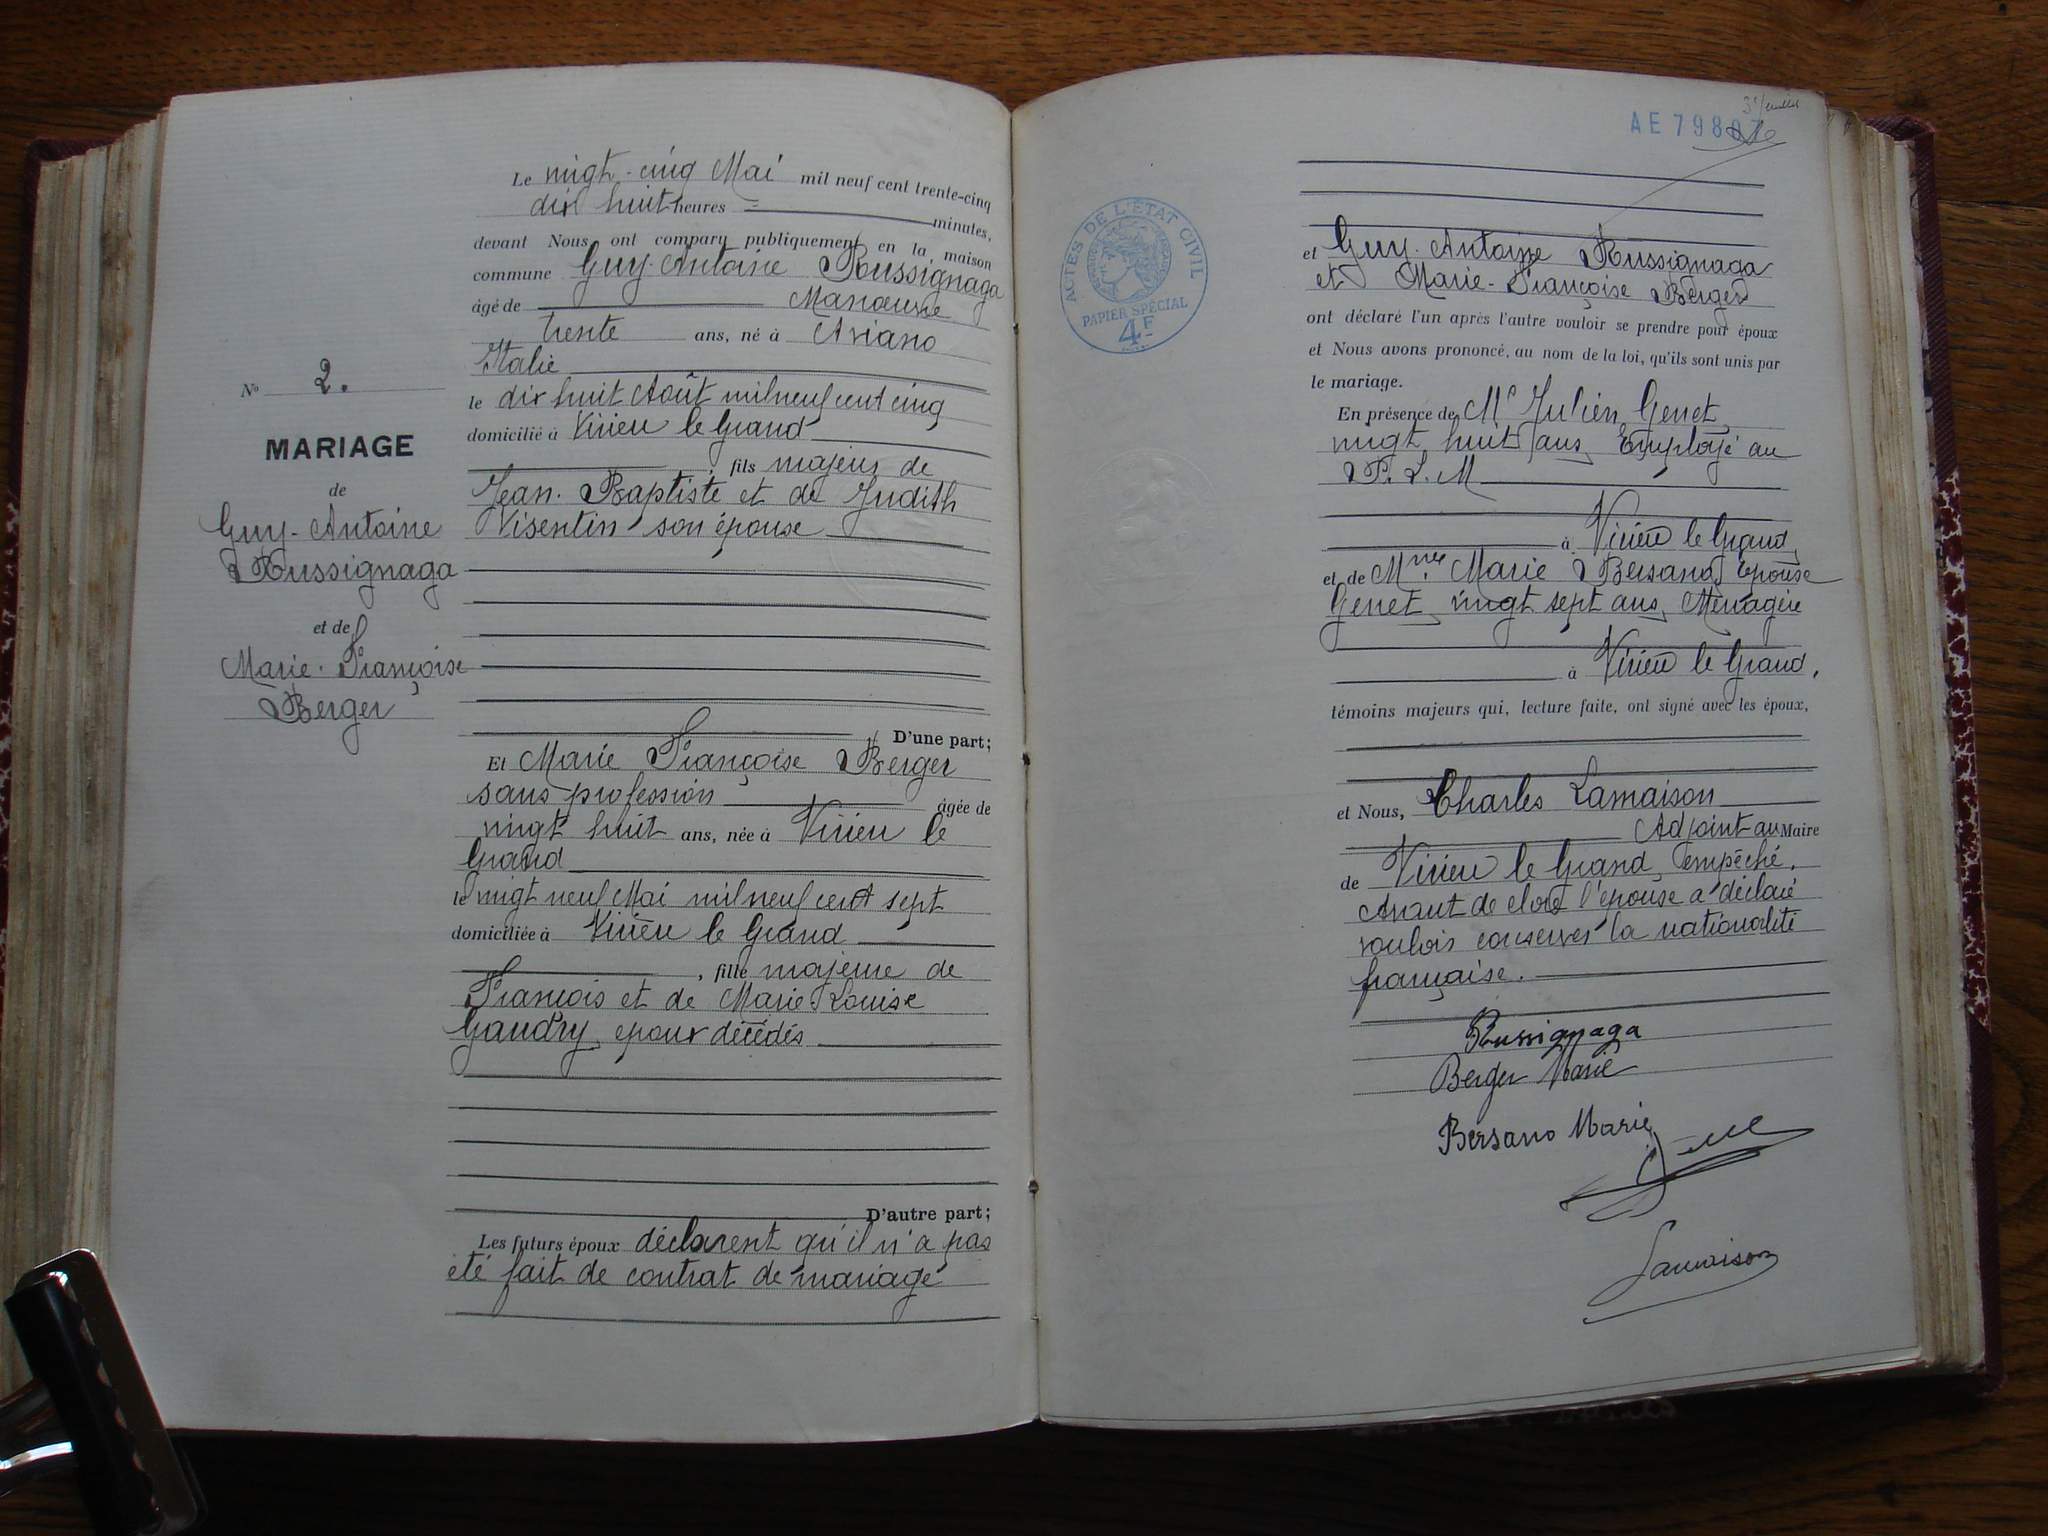 Le vingt-cinq Mai mil neuf cent trente-cinq
dix huit heures = minutes,
devant Nous ont comparu publiquement en la maison
commune Guy-Antoine Russignaga
âgé de Manœuvre
trente ans, né à Aviano
Italie
le dix huit Août mil neuf cent cinq
domicilié à Virieu le Grand
, fils majeur de
Jean-Baptiste et de Judith
Visentin son épouse
N° 2.
MARIAGE
de
Guy-Antoine
Russignaga
et de
Marie-Françoise
Berger
D'une part;
Et Marie Françoise Berger
sans profession âgée de
vingt huit ans, née à Virieu le
Grand
le vingt neuf Mai mil neuf cent sept
domiciliée à Virieu le Grand
, fille majeure de
François et de Marie Louise
Gaudry, époux décédés
D'autre part;
Les futurs époux déclarent qu'il n'a pas
été fait de contrat de mariage
AE 7980
ACTES DE L'ÉTAT CIVIL
PAPIER SPÉCIAL
4F
et Guy-Antoine Russignaga
et Marie-Françoise Berger
ont déclaré l'un après l'autre vouloir se prendre pour époux
et Nous avons prononcé, au nom de la loi, qu'ils sont unis par
le mariage.
En présence de Mr Julien Genet,
vingt huit ans, Employé au
P. L. M
à Virieu le Grand,
et de Mme Marie Bersano, épouse
Genet, vingt sept ans, Ménagère
à Virieu le Grand,
témoins majeurs qui, lecture faite, ont signé avec les époux,
et Nous, Charles Lamaison
Adjoint au Maire
de Virieu le Grand, empêché.
Avant de clore l'épouse a déclaré
vouloir conserver la nationalité
française.
Russignaga
Berger Marie
Bersano Marie
Lamaison